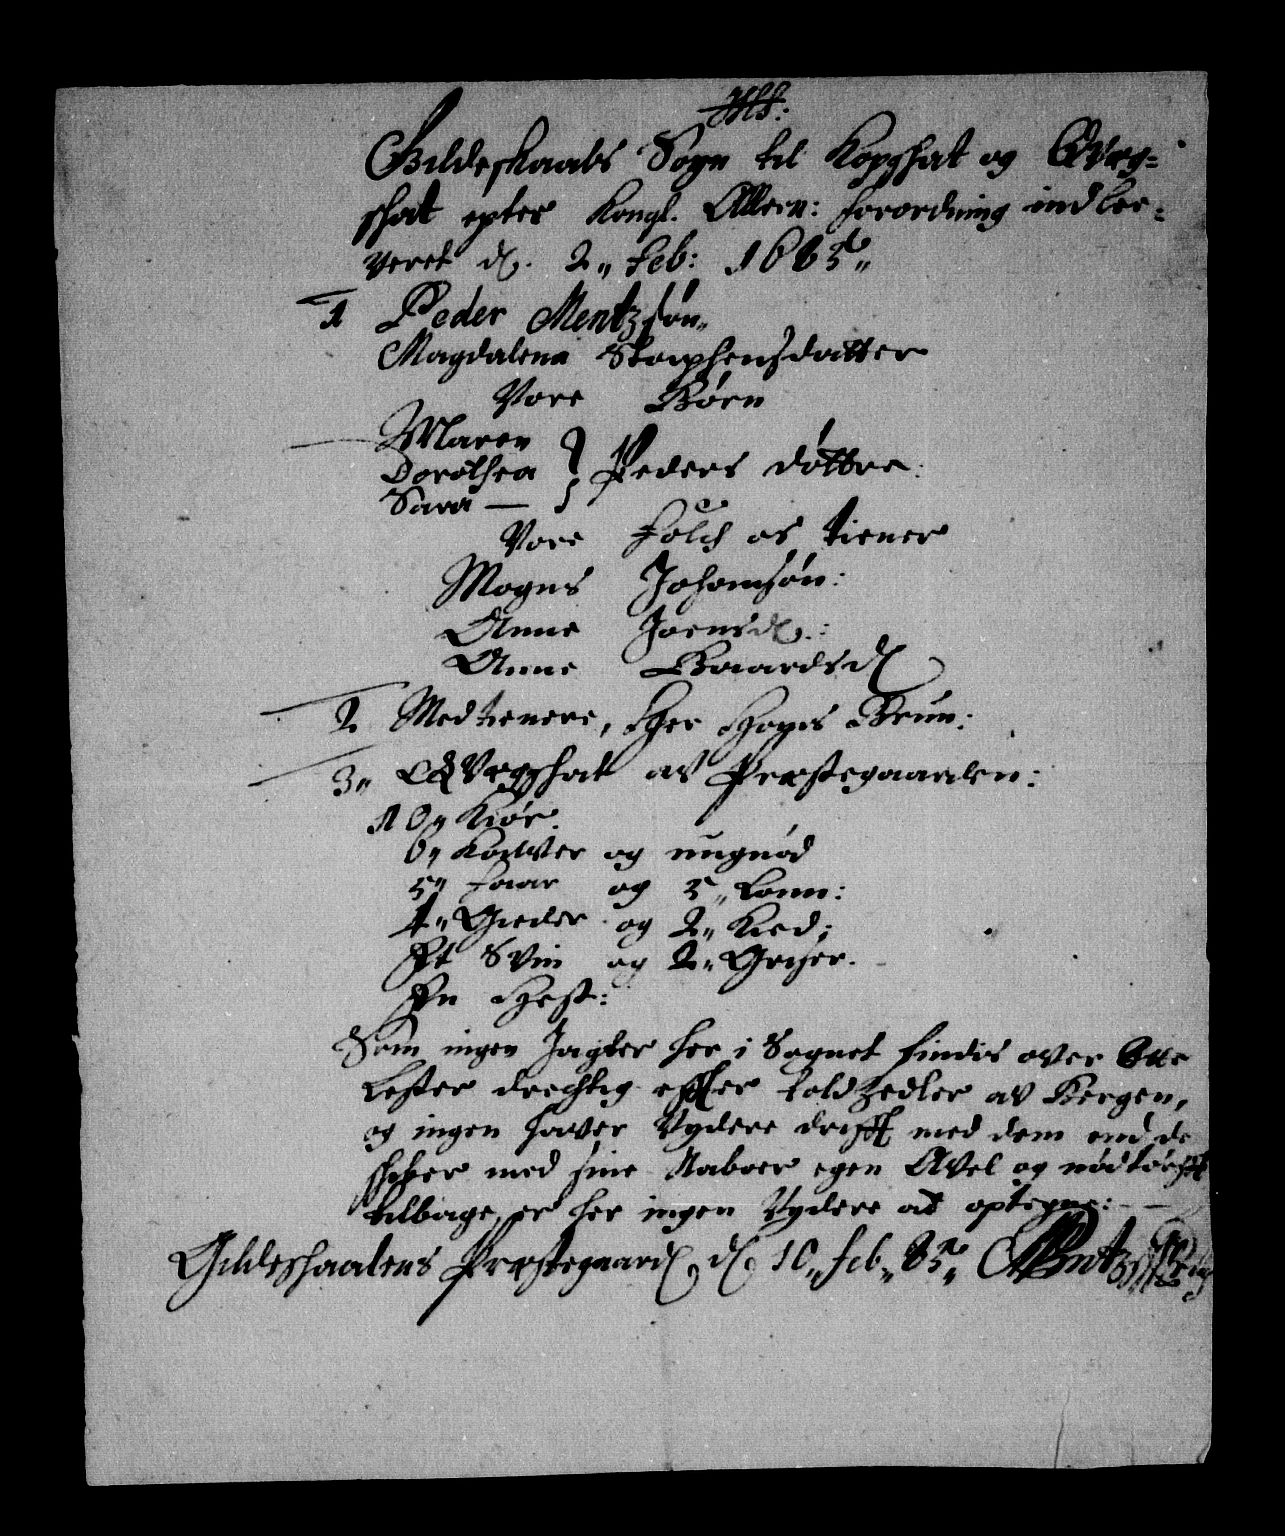 Gildeskaals Sogn til Kopschat og Qveg-
schat epter Kongl. Allern: forordning indlee-
veret d. 2„ feb: 1685„
1 Peder Mentzsøn„
Magdalena Stephensdatter
Vore Børn
Maren
Dorothea } Peders døttre:
Sara —
Vore folch os tiener
Mogns Johansøn:
Anne Joensd.:
Anne Baardsd
2 Medtienere, Her Hans Brun:
3„ Qvegschat av Præstegaarden:
10„ Kiør.
6„ Kalver og ungnød
5„ faar og 5„ Lam:
4„ Gieder og 2„ Kied:
Et Svin og 2„ Griser.
En Hest:
Som ingen Jagter her i Sognet findis over
Lester drechtig effter told Zedler av Bergen,
og ingen haver Vydere drifft med dem end de
med sine Naboer egen Avel og nødtørfft
tilbage, er her ingen Vydere at optegne:
Gildeschaalens Præstegaard d 10„ feb„ 85„